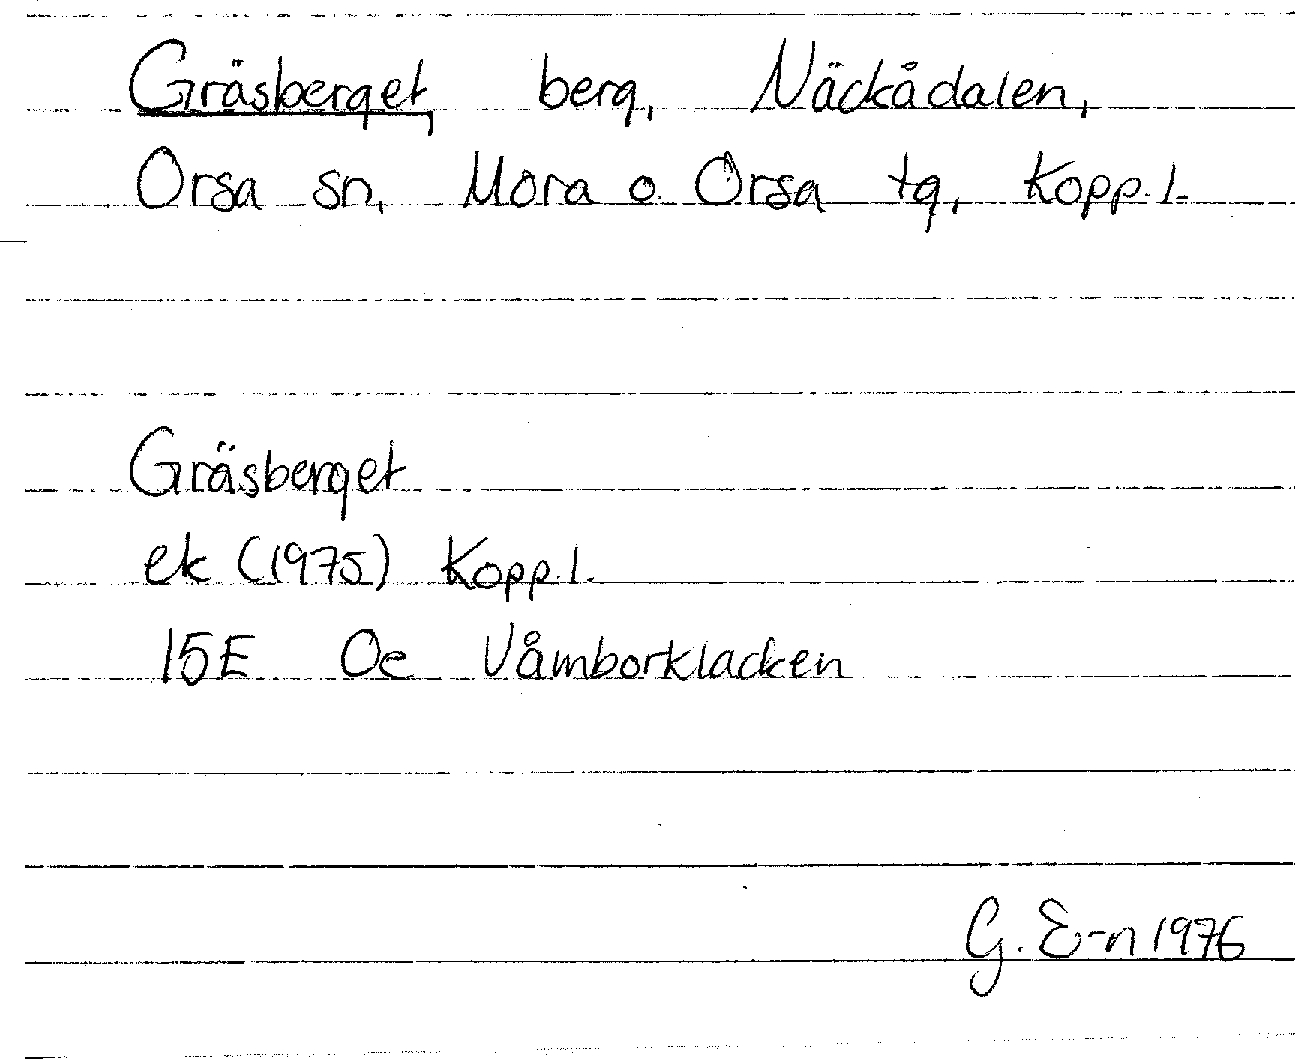 Gräsberget, berg, Näckådalen,
Orsa sn, Mora o. Orsa tg, Kopp. l.
Gräsberget
ek (1975) Kopp. l.
15E 0e Våmborklacken
G. E-n 1976